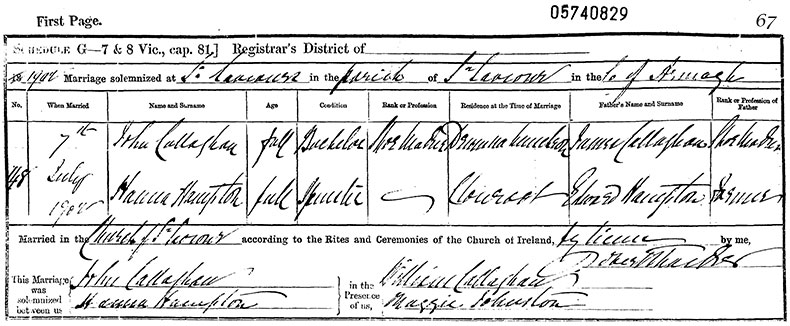 First Page.
05740829
67
SCHEDULE G—7 & 8 Vic., cap. 81.] Registrar's District of
1902 Marriage solemnized at St. Saviours in the parish of St. Saviour in the Co of Armagh
No. When Married Name and Surname Age Condition Rank or Profession Residence at the Time of Marriage Father's Name and Surname Rank or Profession of Father
7th John Callaghan full Bachelor Shoe Maker James Callaghan Shoe Maker
July
1902 Hanna Hampton full Spinster Clonroot Edward Hampton Farmer
Married in the Church of St. Saviour according to the Rites and Ceremonies of the Church of Ireland, by license by me,
This Marriage was solemnized between us John Callaghan in the Presence of us, William Callaghan
Hanna Hampton Maggie Johnston